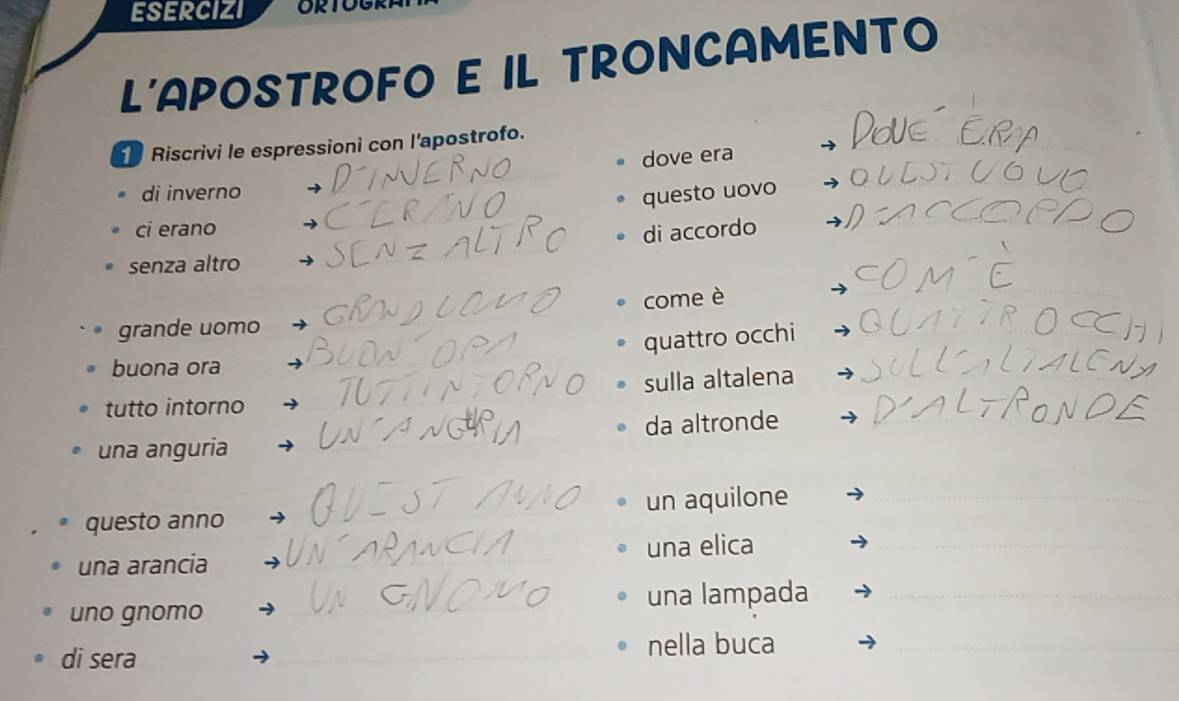 ESERCIZI
L'APOSTROFO E IL TRONCAMENTO
1 Riscrivi le espressioni con l'apostrofo.
• di inverno → D'INVERNO
• ci erano → C'ERANO
• senza altro → SENZ ALTRO
• grande uomo → GRAND UOMO
• buona ora → BUON'ORA
• tutto intorno → TUTT INTORNO
• una anguria → UN'ANGURIA
• questo anno → QUEST ANNO
• una arancia → UN'ARANCIA
• uno gnomo → UN GNOMO
• di sera →
• dove era → DOVE' ERA
• questo uovo → QUEST UOVO
• di accordo → D'ACCORDO
• come è → COM'È
• quattro occhi → QUATTR OCCHI
• sulla altalena → SULL'ALTALENA
• da altronde → D'ALTRONDE
• un aquilone →
• una elica →
• una lampada →
• nella buca →